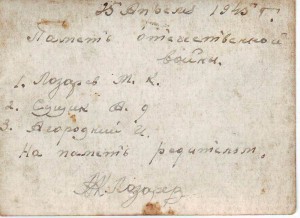 25 Апреля 1945 г.
Паметь отечественной
войны.
1. Лозарев М. К.
2. Сущик А. Д
3. Агородний И.
На паметь родителям.
Лозарев